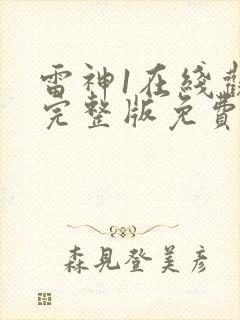 雷神1在綫觀
完整版免費
森見登美彦